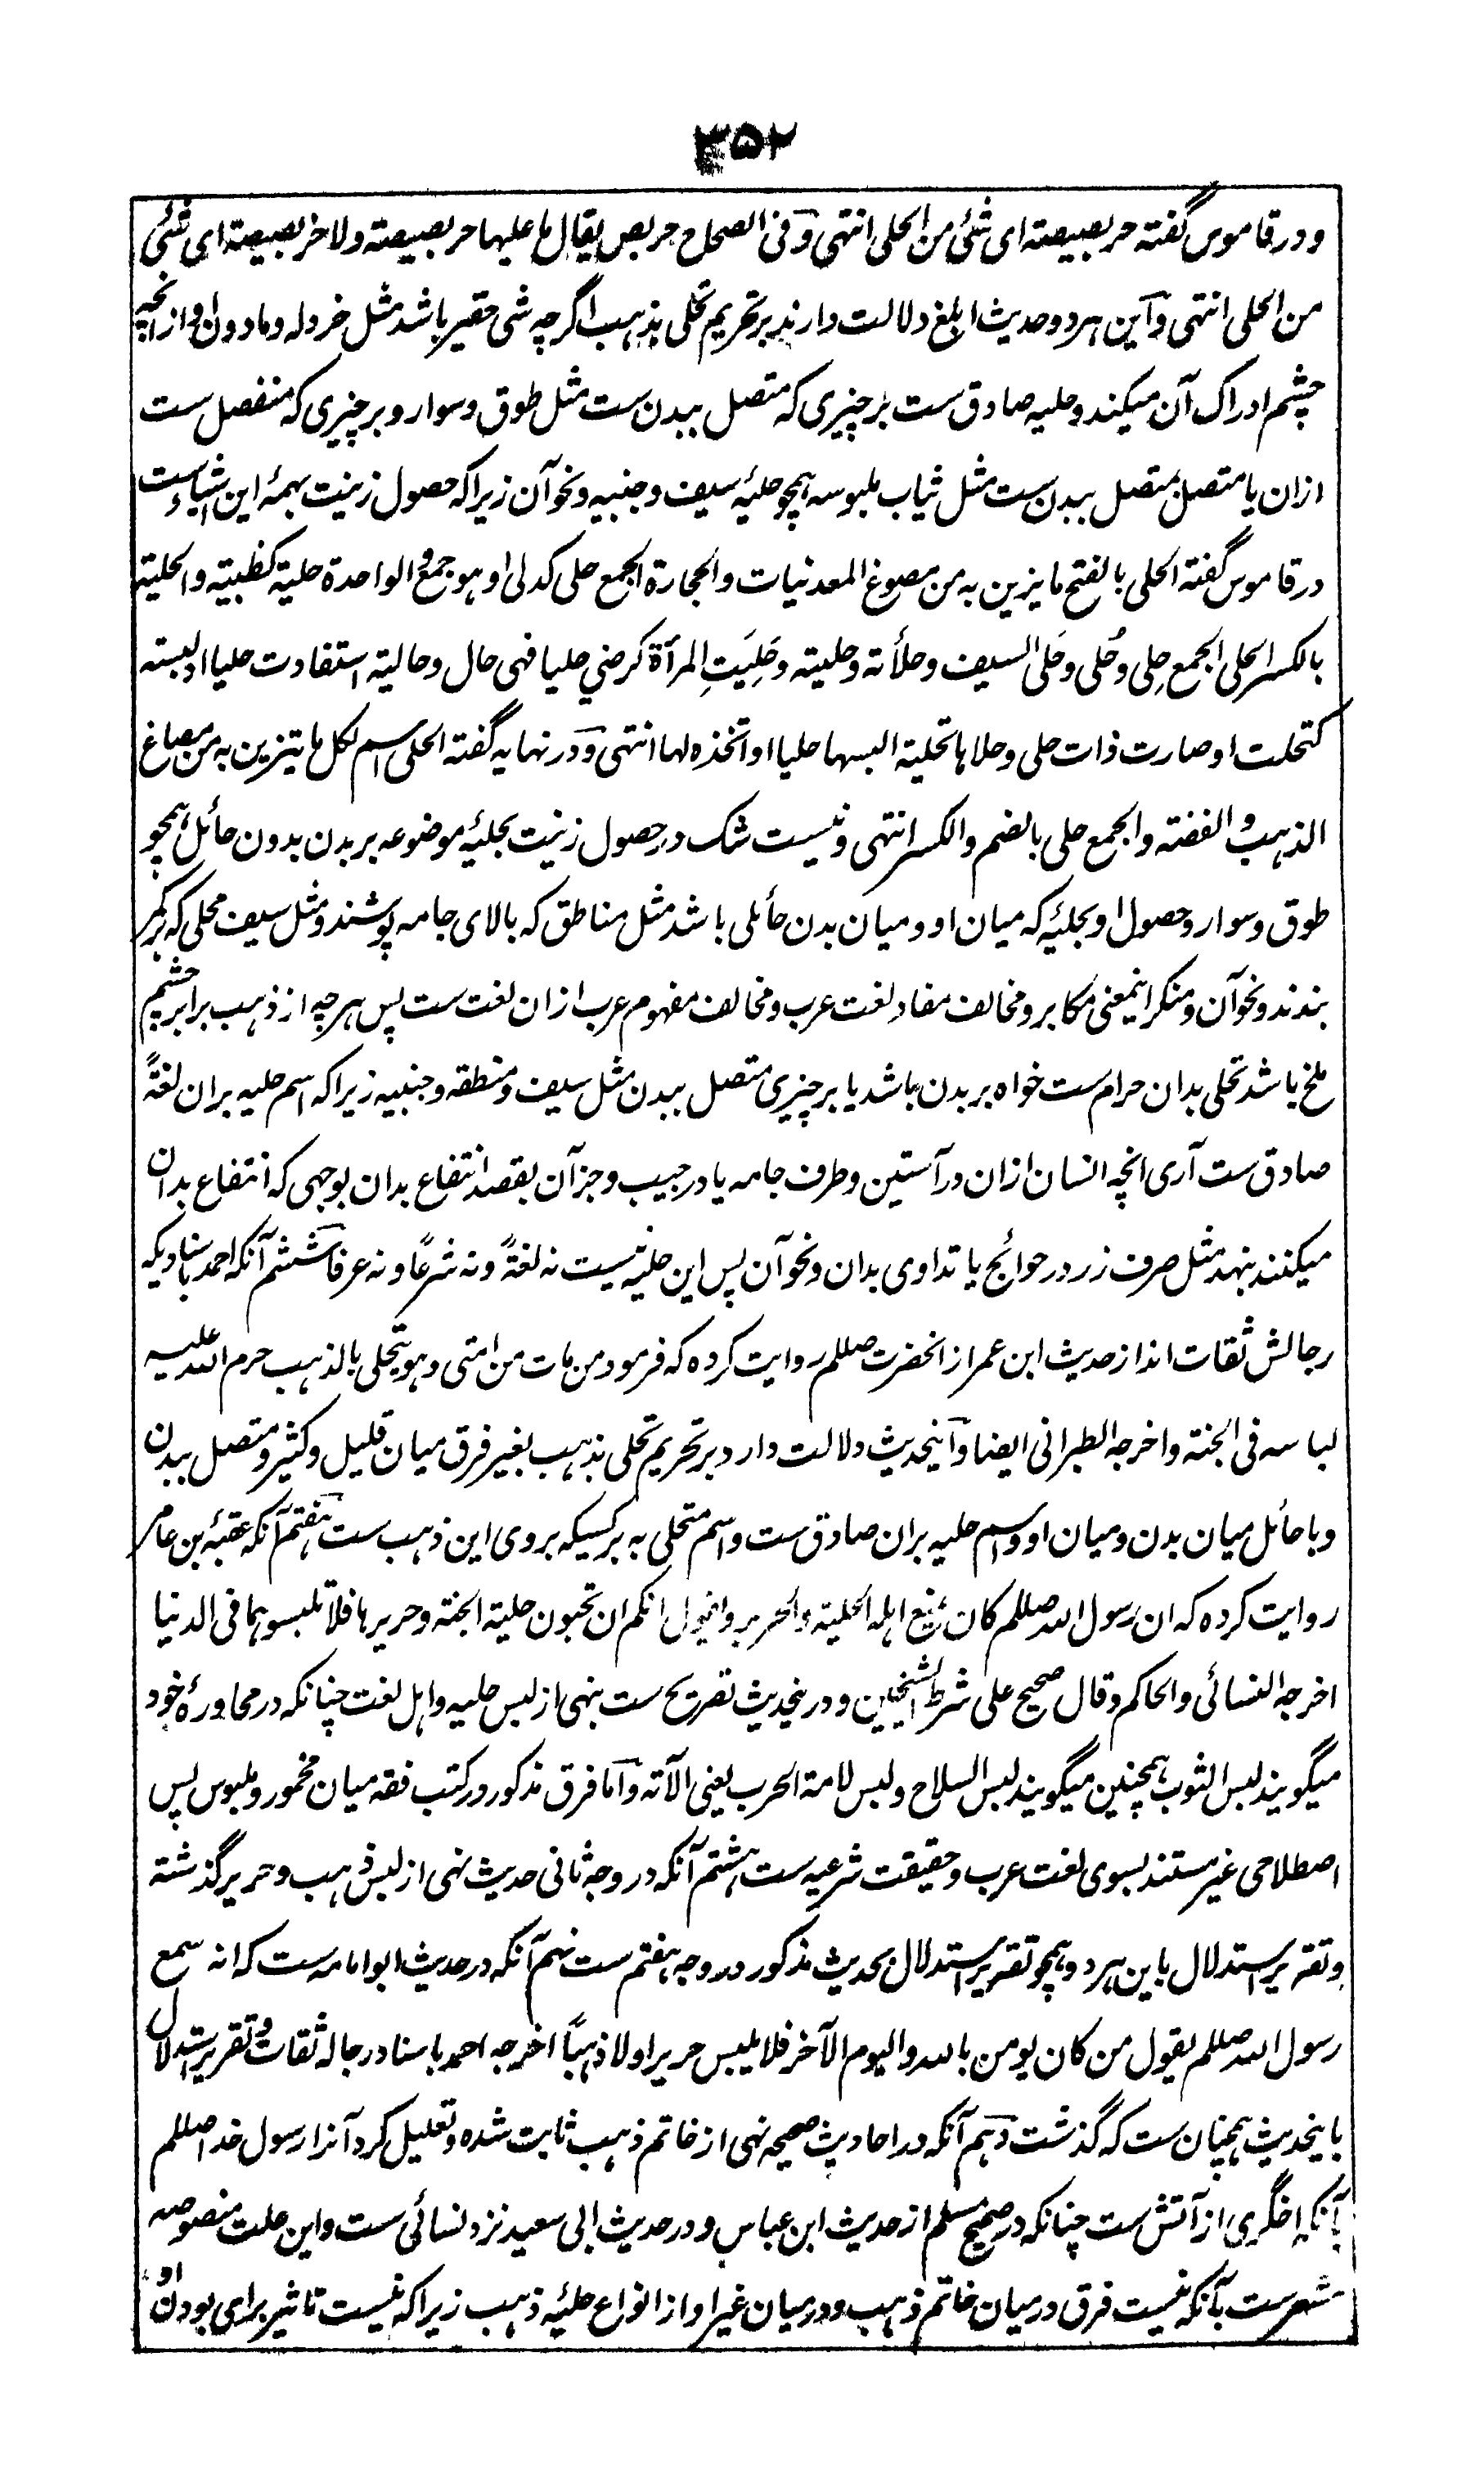 ۳۵۲
و در قاموس گفته خربصیصة ای شئ من الحلی انتهی و فی الصحاح خربص یقال ما علیها خربصیصة ولا خربصیصة ای شئ
من الحلی انتهی و این هر دو حدیث ابلغ دلالت دارند بر تحریم تحلی بذهب اگرچه شی حقیر باشد مثل خردله و ما دون او از انچه
چشم ادراک آن میکند و حلیه صادق ست بر چیزی که متصل ببدن ست مثل طوق و سوار و بر چیزی که منفصل ست
ازان یا متصل بمتصل ببدن ست مثل ثیاب ملبوسه همچو حلیۀ سیف و جنبیه و نحو آن زیرا که حصول زینت بهمۀ این اشیاء ست
در قاموس گفته الحلی بالفتح ما یزین به من مصوغ المعدنیات والحجارة الجمع حلی کدلی او هو جمع و الواحدة حلیة کظبیة والحلیة
بالکسر الحلی الجمع حِلی وحُلی وحَلی السیف وحلأته وحلیته وحَلِیَتِ المرأة کرضي حلیا فهی حال وحالیة استفادت حلیا او لبسته
کتحلت او صارت ذات حلی وحلاها تحلیة البسها حلیا او اتخذه لها انتهی و در نهایه گفته الحلی اسم لکل ما یتزین به من مصاغ
الذهب و الفضة والجمع حلی بالضم والکسر انتهی و نیست شک در حصول زینت بحلیۀ موضوعه بر بدن بدون حائل همچو
طوق و سوار و حصول او بحلیۀ که میان او و میان بدن حائلی باشد مثل مناطق که بالای جامه پوشند و مثل سیف محلی که بر کمر
بندند و نحو آن و منکر اینمعنی مکابر و مخالف مفاد لغت عرب و مخالف مفهوم عرب ازان لغت ست پس هر چه از ذهب برابر چشم
ملخ باشد تحلی بدان حرام ست خواه بر بدن باشد یا بر چیزی متصل ببدن مثل سیف و منطقه و جنبیه زیرا که اسم حلیه بران لغةً
صادق ست آری انچه انسان ازان در آستین و طرف جامه یا در جیب و جز آن بقصد انتفاع بدان بوجهی که انتفاع بدان
میکنند بنهد مثل صرف زر در حوائج یا تداوی بدان و نحو آن پس این حلیه نیست نه لغةً و نه شرعًا و نه عرفا ششم آنکه احمد باسنادیکه
رجالش ثقات اند از حدیث ابن عمر از انحضرت صللم روایت کرده که فرمود من مات من امتی وهو یتحلی بالذهب حرم الله علیه
لباسه فی الجنة واخرجه الطبرانی ایضا و اینحدیث دلالت دارد بر تحریم تحلی بذهب بغیر فرق میان قلیل و کثیر و متصل ببدن
و با حائل میان بدن و میان او و اسم حلیه بران صادق ست و اسم متحلی به بر کسیکه بروی این ذهب ست هفتم آنکه عقبۀ بن عامر
روایت کرده که ان رسول الله صللم کان یمنع اهله الحلیة والحریر ویقول انکم ان تحبون حلیة الجنة وحریرها فلا تلبسوهما فی الدنیا
اخرجه النسائی والحاکم وقال صحیح علی شرط الشیخین و درینحدیث تصریح ست بنهی از لبس حلیه و اهل لغت چنانکه در محاورۀ خود
میگویند لبس الثوب همچنین میگویند لبس السلاح ولبس لامة الحرب یعنی الآته و اما فرق مذکور در کتب فقه میان مخمور و ملبوس پس
اصطلاحی غیر مستند بسوی لغت عرب و حقیقت شرعیه ست هشتم آنکه در وجه ثانی حدیث نهی از لبس ذهب و حریر گذشته
و تقریر استدلال باین هر دو همچو تقریر استدلال بحدیث مذکور در وجه هفتم ست نهم آنکه در حدیث ابو امامه ست که انه سمع
رسول الله صللم یقول من کان یومن بالله والیوم الآخر فلا یلبس حریرا ولا ذهبًا اخرجه احمد باسناد رجاله ثقات و تقریر استدلال
باینحدیث همچنان ست که گذشت دهم آنکه در احادیث صحیحه نهی از خاتم ذهب ثابت شده و تعلیل کرد آنرا رسول خدا صللم
بآنکه اخگری از آتش ست چنانکه در صحیح مسلم از حدیث ابن عباس و در حدیث ابی سعید نزد نسائی ست و این علت منصوصه
مشعر ست بآنکه نیست فرق درمیان خاتم ذهب و درمیان غیر او از انواع حلیۀ ذهب زیرا که نیست تاثیر برای بودن او